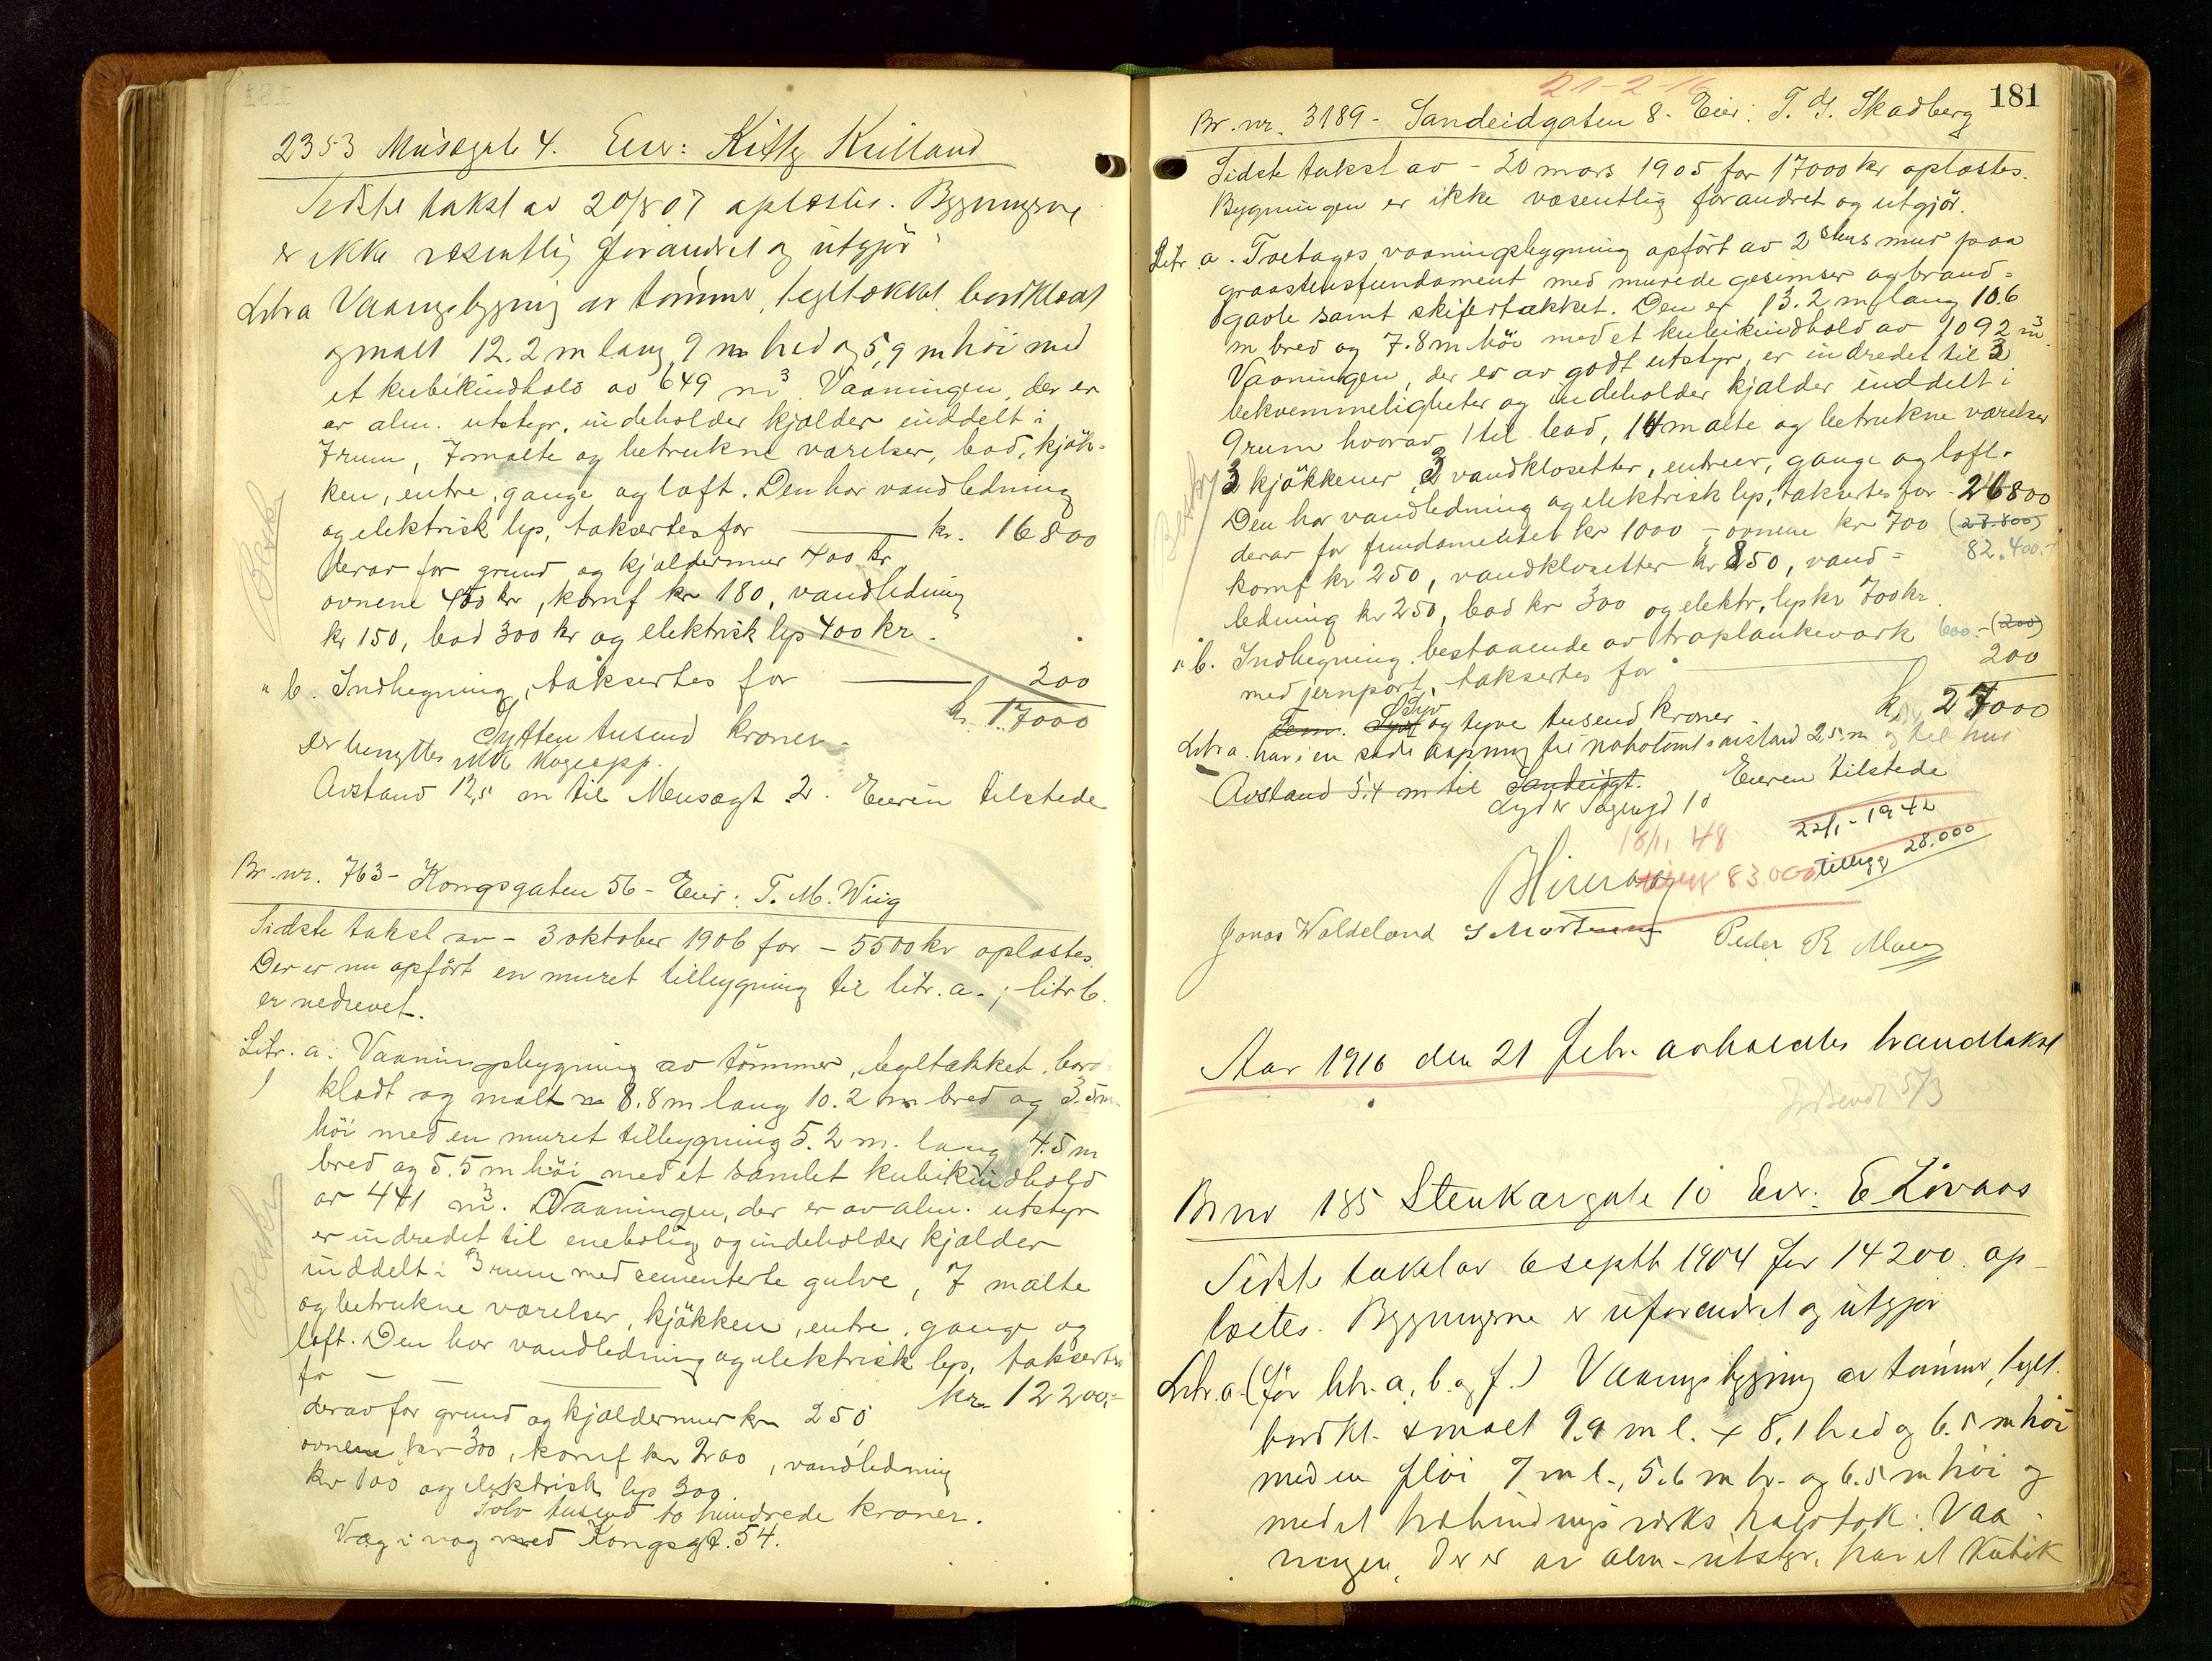 2353 Musegate 4. Eier: Kitty Kielland
Sidste takst av 20/8 07 oplæstes. Bygningerne
er ikke væsentlig forandret og utgjør:
Litra Vaaningsbygning av tømmer, tegltækket, bordklædt
og malt 12.2 m lang 9 m bred og 5,9 m høi med
et kubikindhold av 649 m³. Vaaningen, der er
av alm. utstyr, indeholder kjælder inddelt i
7 rum, 7 malte og betrukne værelser, bad, kjøk-
ken, entre, gange og loft. Den har vandledning
og elektrisk lys, taksertes for — kr. 16800
derav for grund og kjældermur 400 kr
ovnene 400 kr, komf kr 180, vandledning
kr 150, bad 300 kr og elektrisk lys 400 kr.
" b. Indhegning, taksertes for — 200
kr. 17000
Sytten tusend kroner.
Der benyttes kogeapp.
Avstand 12,5 m til Musegt 2. Eieren tilstede
Br. nr. 763 - Kongsgaten 56 - Eier: T. M. Wiig
Sidste takst av - 3 oktober 1906 for - 5500 kr oplæstes.
Der er nu opført en muret tilbygning til litr. a. ; litr b.
er nedrevet.
Litr. a. Vaaningsbygning av tømmer, tegltækket, bord-
klædt og malt 8.8 m lang 10.2 m bred og 3.5 m
høi med en muret tilbygning 5.2 m. lang 4.5 m
bred og 5.5 m høi med et samlet kubikindhold
av 441 m³. Vaaningen, der er av alm. utstyr
er indredet til enebolig og indeholder kjælder
inddelt i 3 rum med sementerte gulve, 7 malte
og betrukne værelser, kjøkken, entre, gange og
loft. Den har vandledning og elektrisk lys, taksertes
for — kr. 12200.-
derav for grund og kjældermur kr 250,
ovnene kr 300, komf kr 200, vandledning
kr 100 og elektrisk lys 300.
Tolv tusend to hundrede kroner.
Væg i væg med Kongsgt. 54.
181
21-2-16
Br. nr. 3189 - Sandeidgaten 8. Eier: T. G. Skadberg
Sidste takst av - 20 mars 1905 for 17000 kr oplæstes.
Bygningen er ikke væsentlig forandret og utgjør.
Litr. a. Toetages vaaningsbygning opført av 2 stens mur paa
graastensfundament med murede gesimser og brand-
gavle samt skifertækket. Den er 13.2 m lang 10.6
m bred og 7.8 m høi med et kubikindhold av 1092 m³.
Vaaningen, der er av godt utstyr, er indredet til 3
bekvemmeligheter og indeholder kjælder inddelt i
9 rum hvorav 1 til bad, 14 malte og betrukne værelser
3 kjøkkener, 3 vandklosetter, entreer, gange og loft.
Den har vandledning og elektrisk lys, taksertes for - 26800
derav for fundamentet kr 1000 - ovnene kr 700 (27.800)
82.400.-
komf kr 250, vandklosetter kr 850, vand-
ledning kr 250, bad kr 300 og elektr. lys kr 700 kr.
" b. Indhegning bestaaende av træplankeverk 600.- (200)
med jernport, taksertes for — 200
kr 27000
Syv og tyve tusend kroner
Litra har i en side aapning til nabotomt avstand 2,5 m
Avstand 5.4 m til Sandeidgt. Eieren tilstede
22/1 - 1942
18/11 48
tillegg 28.000
83.000
Jonas Waldeland S Mortensen Peder R Maeng
Aar 1916 den 21 Febr. avholdtes brandtakst
Indsendt 5/3
Br nr 185 Stenkargate 10 Eier: E Løvaas
Sidste takst av 6 septb 1904 for 14200. op-
læstes. Bygningerne er uforandret og utgjør
Litr. a (før litr. a, b. og f.) Vaaningsbygning av tømmer, teglt.
bordkl. & malt 9.9 m l. x 8.1 bred og 6.5 m høi
med en fløi 7 m l., 5.6 m br. og 6.5 m høi og
med et træbindingsverks halvtak. Vaa-
ningen, der er av alm. utstyr, har et kubik